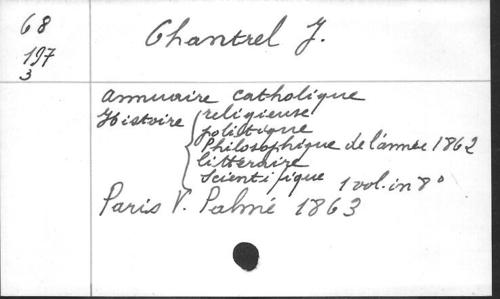 68
197
3
Chantrel J.
annuaire catholique
Histoire { religieuse
politique
Philosophique de l'année 1862
litteraire
Scientifique
1 vol. in 8°
Paris V. Palmé 1863